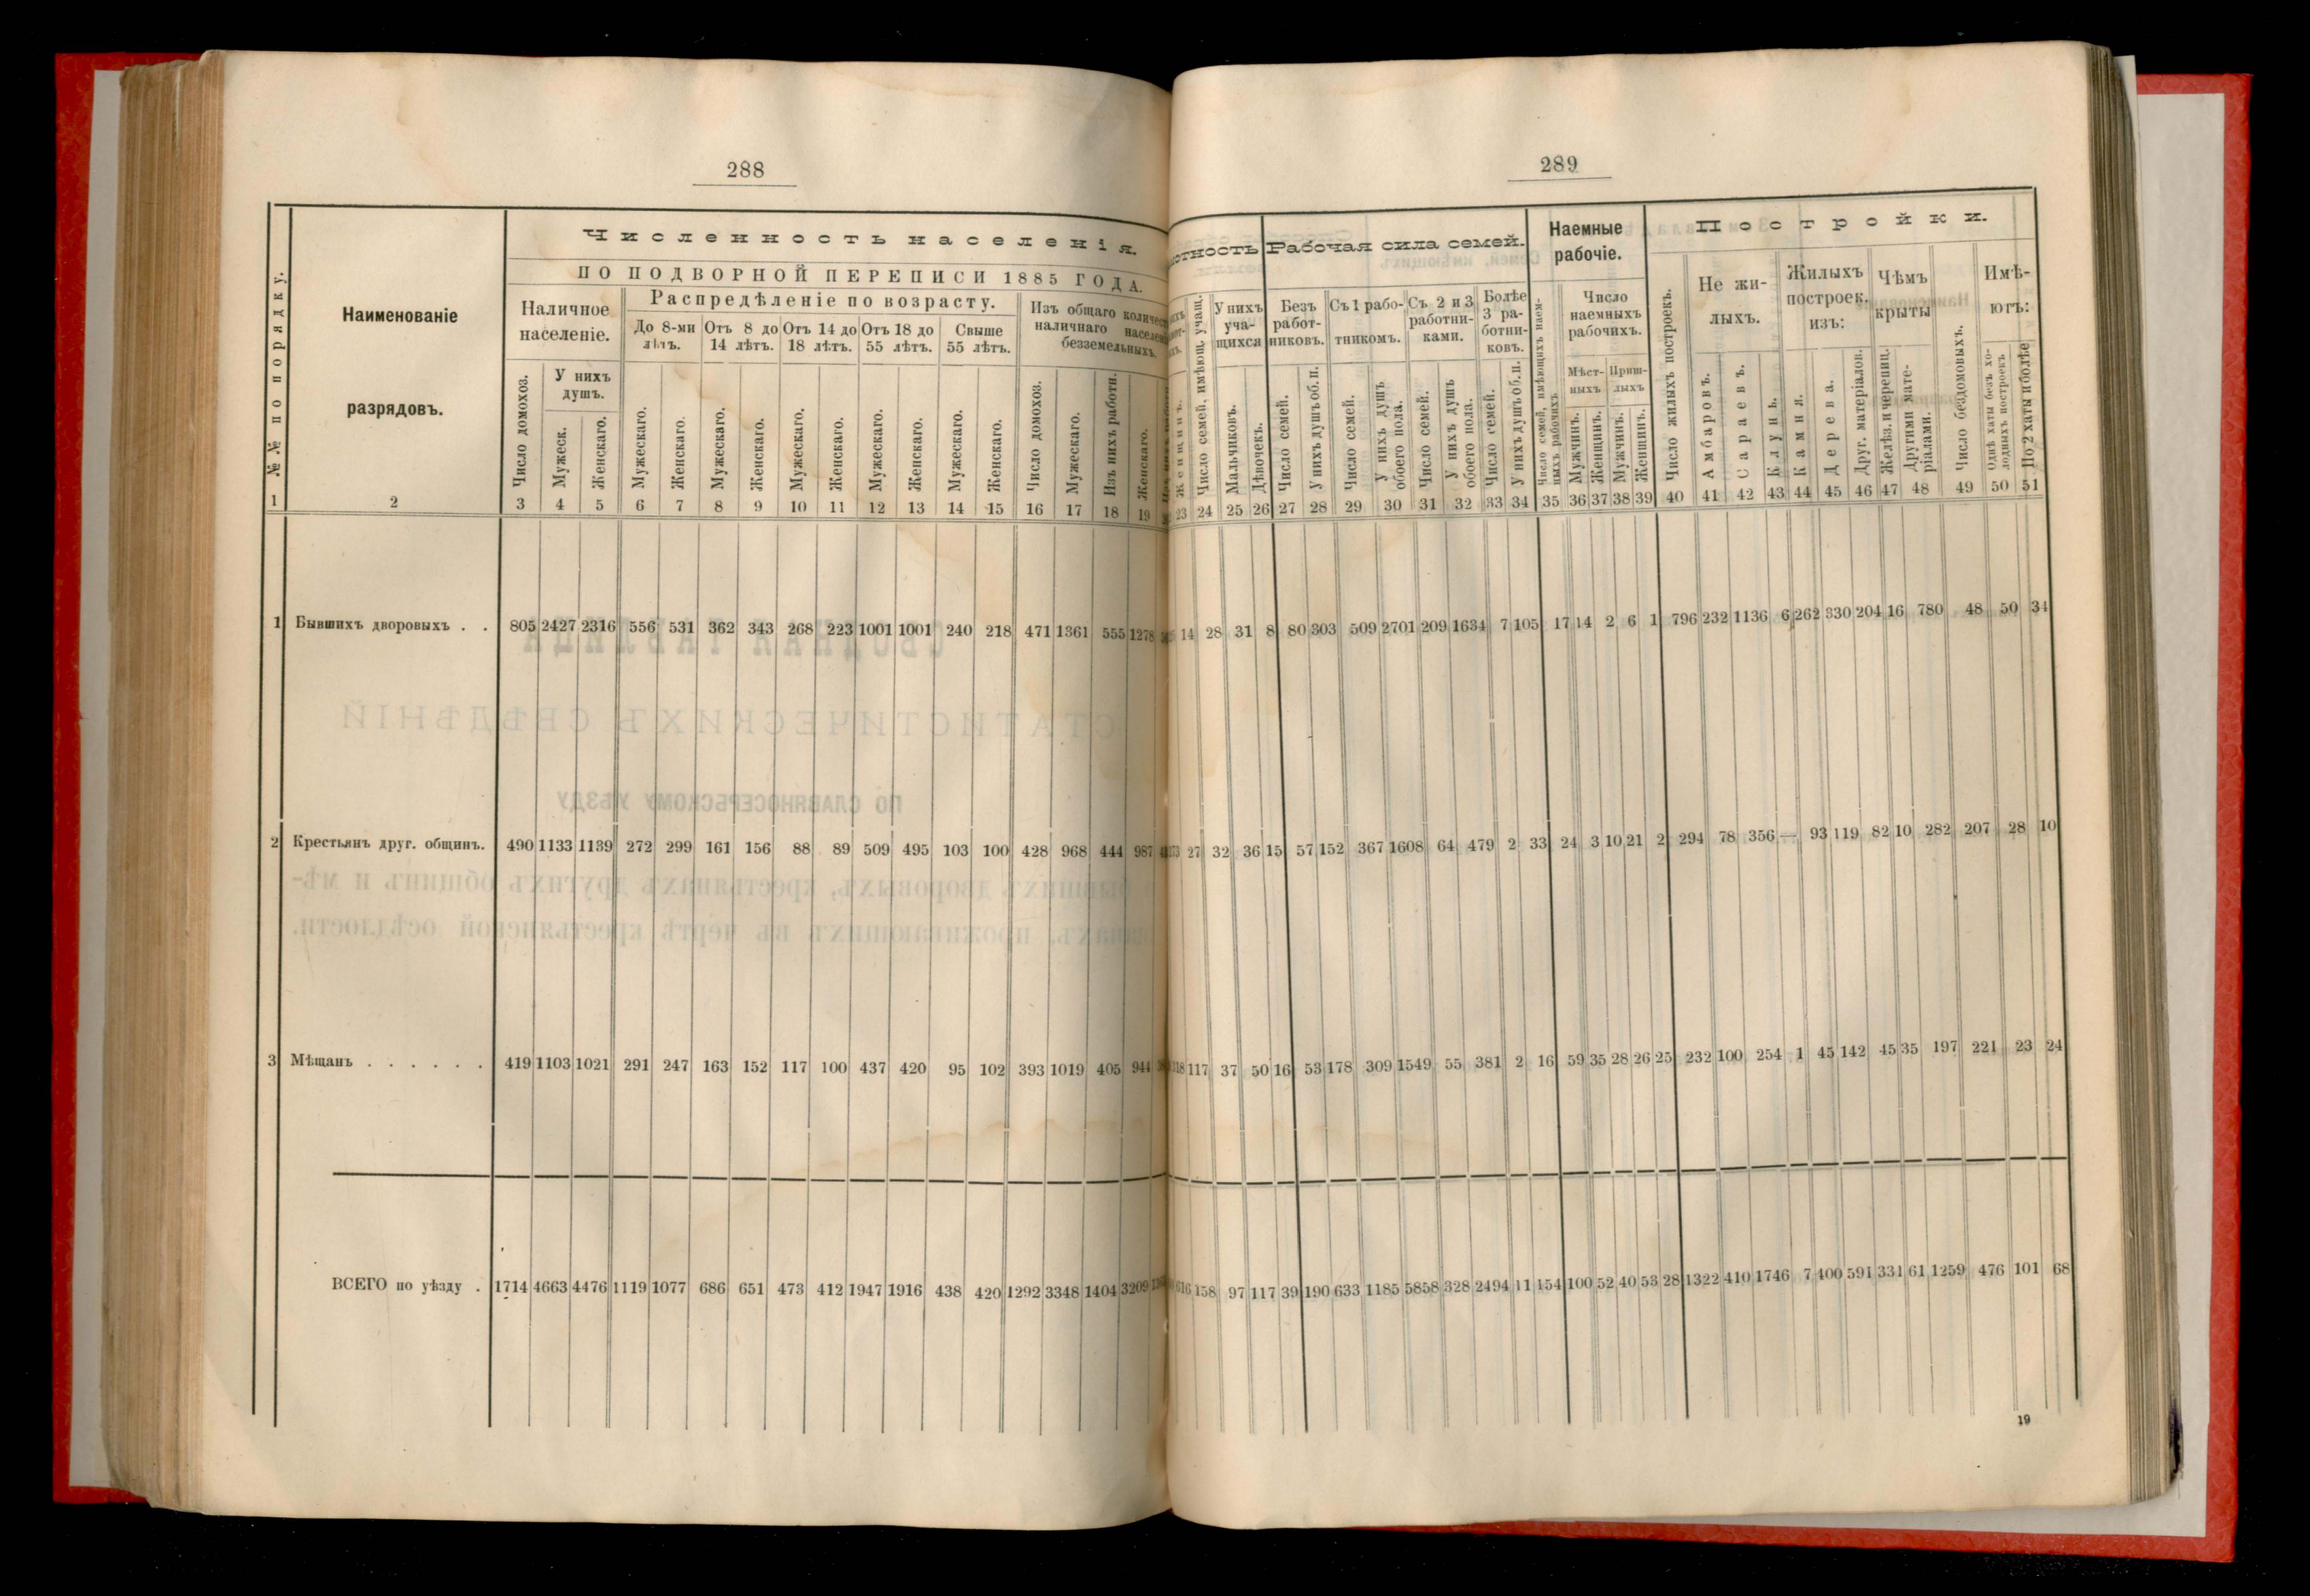 288
Численность населенія.
ПО ПОДВОРНОЙ ПЕРЕПИСИ 1885 ГОДА.
№№ по порядку.
Наименованіе
разрядовъ.
Наличное
населеніе.
Распредѣленіе по возрасту.
Изъ общаго
наличнаго
безземельныхъ.
До 8-ми лѣтъ.
Отъ 8 до 14 лѣтъ.
Отъ 14 до 18 лѣтъ.
Отъ 18 до 55 лѣтъ.
Свыше 55 лѣтъ.
Число домохоз.
У нихъ душъ.
Мужеск.
Женскаго.
Мужескаго.
Женскаго.
Мужескаго.
Женскаго.
Мужескаго.
Женскаго.
Мужескаго.
Женскаго.
Мужескаго.
Женскаго.
Число домохоз.
Мужескаго.
Изъ нихъ работн.
Женскаго.
1 2 3 4 5 6 7 8 9 10 11 12 13 14 15 16 17 18 19
1 Бывшихъ дворовыхъ . . 805 2427 2316 556 531 362 343 268 223 1001 1001 240 218 471 1361 555 1278
2 Крестьянъ друг. общинъ. 490 1133 1139 272 299 161 156 88 89 509 495 103 100 428 968 444 987
3 Мѣщанъ . . . . . . 419 1103 1021 291 247 163 152 117 100 437 420 95 102 393 1019 405 944
ВСЕГО по уѣзду . 1714 4663 4476 1119 1077 686 651 473 412 1947 1916 438 420 1292 3348 1404 3209
289
Рабочая сила семей.
Наемные
рабочіе.
Постройки.
Число семей, имѣющ. учащ.
У нихъ
уча-
щихся
Безъ
работ-
никовъ.
Съ 1 рабо-
тникомъ.
Съ 2 и 3
работни-
ками.
Болѣе
3 ра-
ботни-
ковъ.
Число семей, имѣющихъ наем-
ныхъ рабочихъ
Число
наемныхъ
рабочихъ.
Мѣст-
ныхъ
Приш-
лыхъ
Число жилыхъ построекъ.
Не жи-
лыхъ.
Жилыхъ
построек.
изъ:
Чѣмъ
крыты
Число бездомовыхъ.
Имѣ-
ютъ:
Женщинъ.
Мальчиковъ.
Дѣвочекъ.
Число семей.
У нихъ душъ об. п.
Число семей.
У нихъ душъ
обоего пола.
Число семей.
У нихъ душъ
обоего пола.
Число семей.
У нихъ душъ об. п.
Мужчинъ.
Женщинъ.
Мужчинъ.
Женщинъ.
Амбаровъ.
Сараевъ.
Клунь.
Камня.
Дерева.
Друг. матеріалов.
Желѣз. и черепиц.
Другими мате-
ріалами.
Однѣ хаты безъ хо-
лодныхъ построекъ
По 2 хаты и болѣе
23 24 25 26 27 28 29 30 31 32 33 34 35 36 37 38 39 40 41 42 43 44 45 46 47 48 49 50 51
14 28 31 8 80 303 509 2701 209 1634 7 105 17 14 2 6 1 796 232 1136 6 262 330 204 16 780 48 50 34
27 32 36 15 57 152 367 1608 64 479 2 33 24 3 10 21 2 294 78 356 — 93 119 82 10 282 207 28 10
117 37 50 16 53 178 309 1549 55 381 2 16 59 35 28 26 25 232 100 254 1 45 142 45 35 197 221 23 24
616 158 97 117 39 190 633 1185 5858 328 2494 11 154 100 52 40 53 28 1322 410 1746 7 400 591 331 61 1259 476 101 68
19